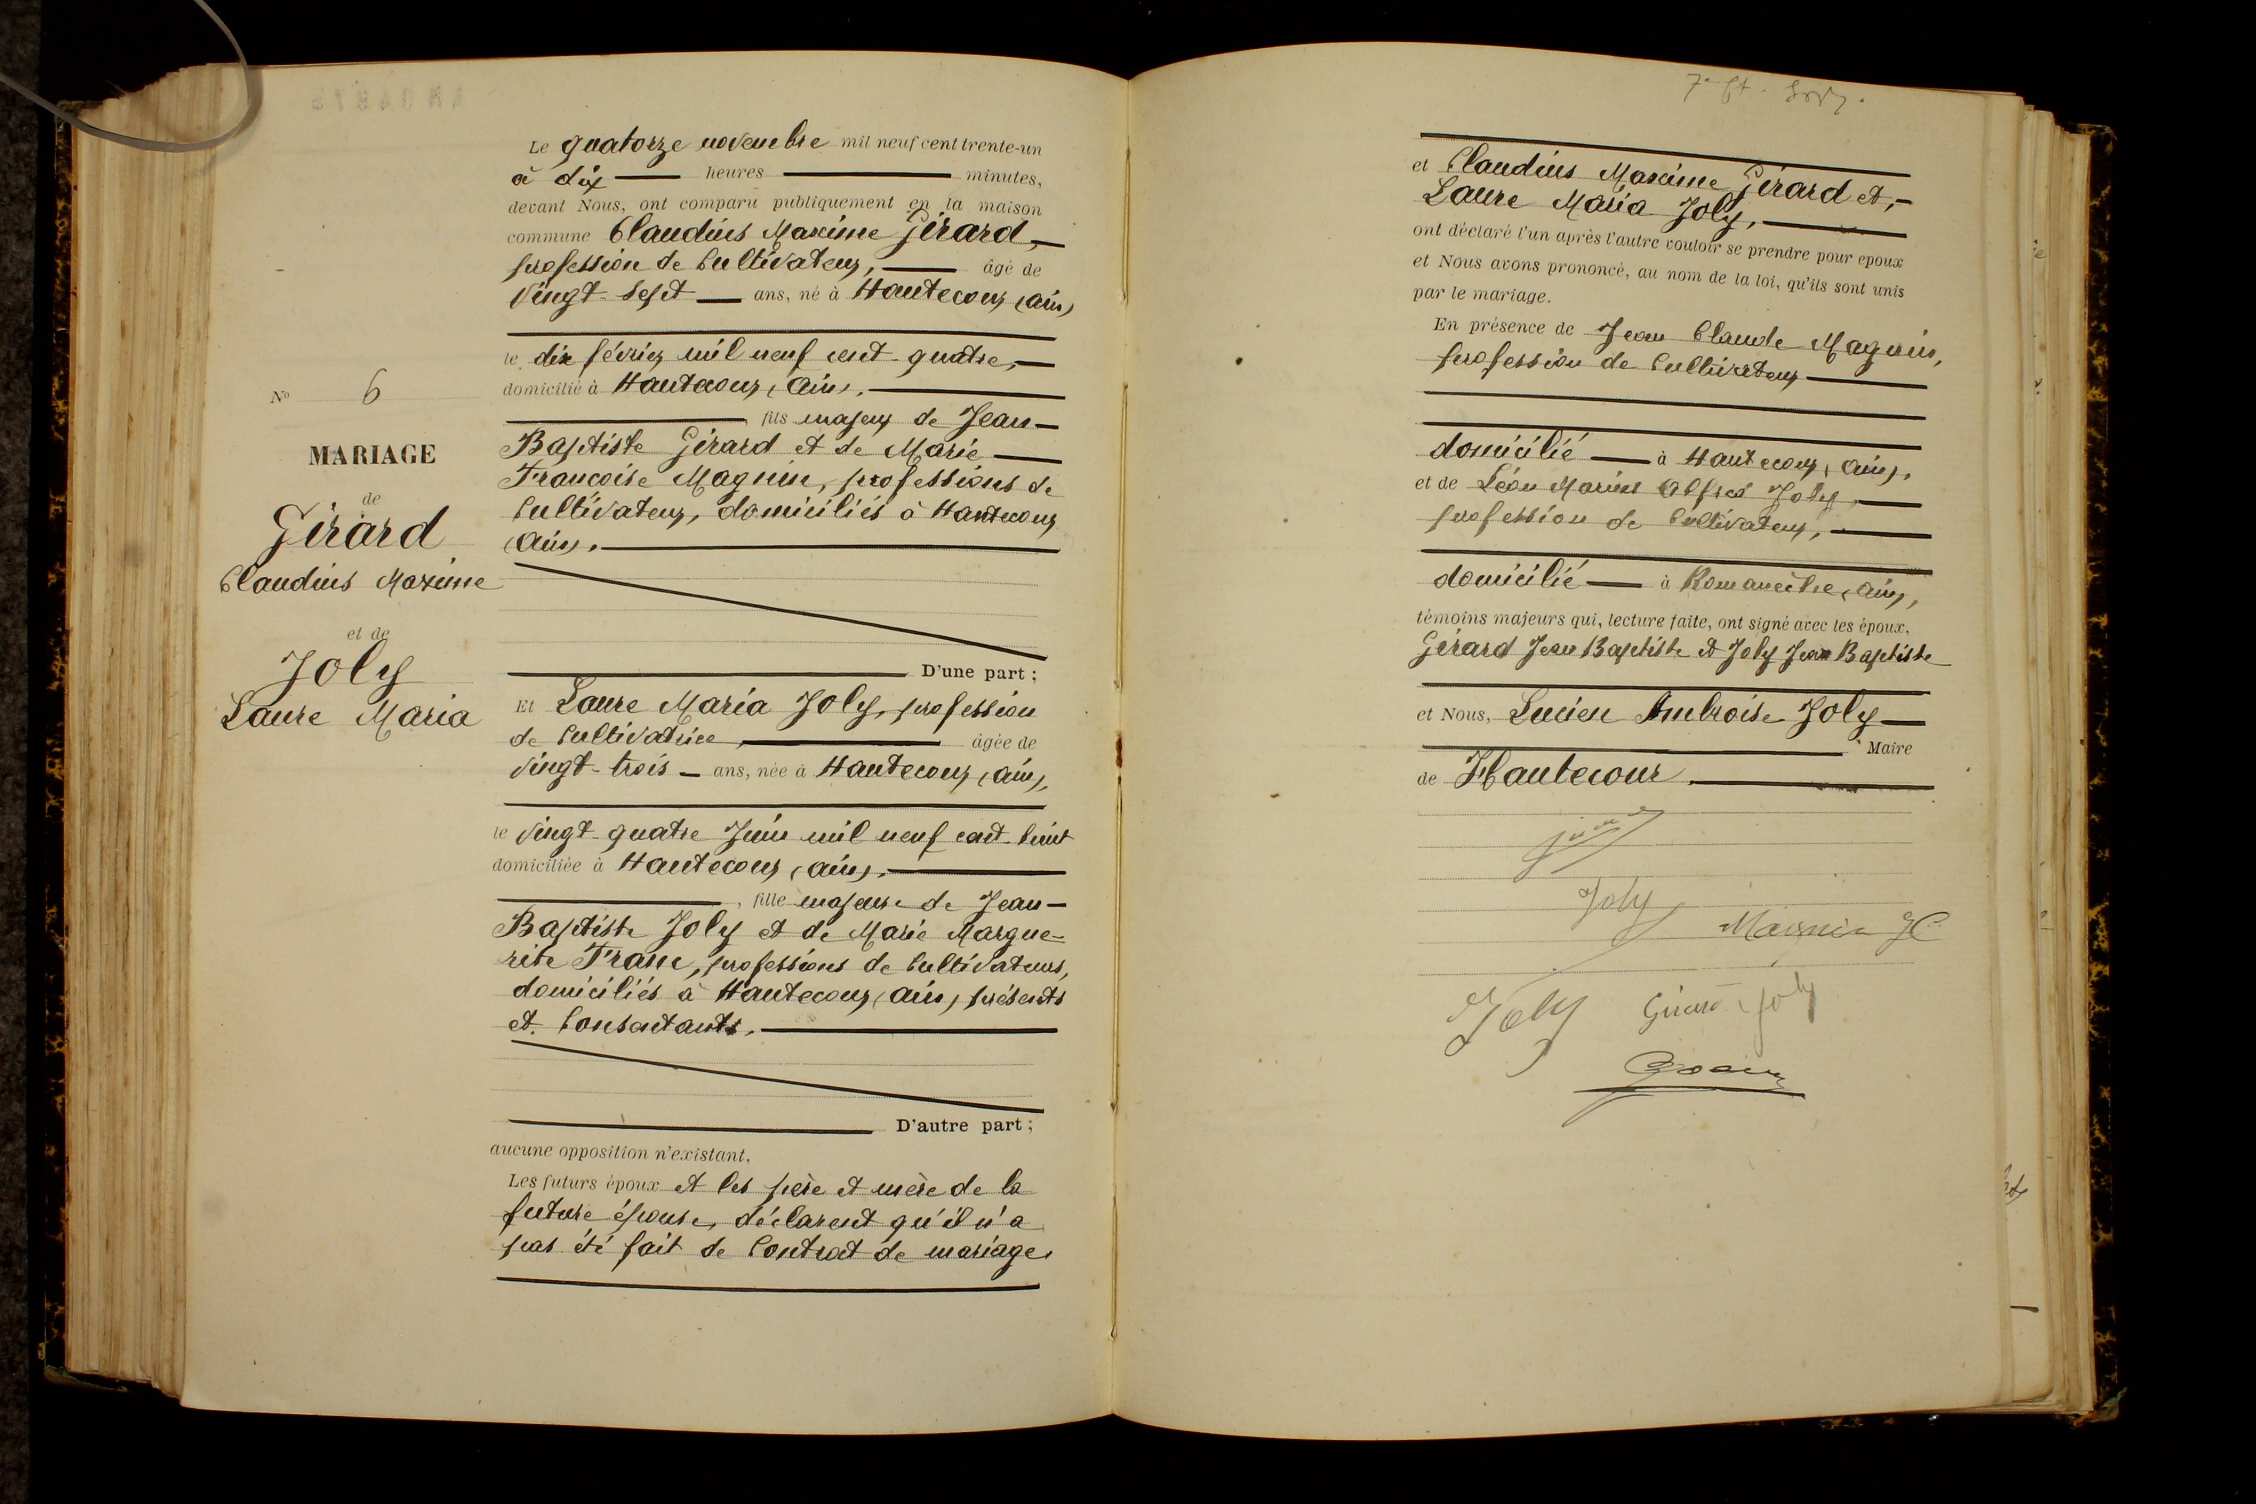 Le quatorze novembre mil neuf cent trente-un
à dix heures minutes,
devant Nous, ont comparu publiquement en la maison
commune Claudius Maxime Girard,
profession de Cultivateur, âgé de
vingt-sept ans, né à Hautecour (Ain)
le dix février mil neuf cent quatre,
domicilié à Hautecour (Ain),
fils majeur de Jean
Baptiste Girard et de Marie
Françoise Magnin, professions de
Cultivateurs, domiciliés à Hautecour
(Ain).
D'une part;
Nº 6
MARIAGE
de
Girard
Claudius Maxime
et de
Joly
Laure Maria
Et Laure Maria Joly, profession
de Cultivatrice, âgée de
vingt-trois ans, née à Hautecour (Ain),
le vingt-quatre Juin mil neuf cent huit
domiciliée à Hautecour (Ain),
fille majeure de Jean
Baptiste Joly et de Marie Margue-
rite Franc, professions de Cultivateurs,
domiciliés à Hautecour (Ain) présents
et Consentants.
D'autre part;
aucune opposition n'existant.
Les futurs époux et les père et mère de la
future épouse, déclarent qu'il n'a
pas été fait de Contrat de mariage
et Claudius Maxime Girard et,
Laure Maria Joly,
ont déclaré l'un après l'autre vouloir se prendre pour époux
et Nous avons prononcé, au nom de la loi, qu'ils sont unis
par le mariage.
En présence de Jean Claude Magnin,
profession de Cultivateur
domicilié à Hautecour (Ain),
et de Léon Marius Alfred Joly,
profession de Cultivateur,
domicilié à Romanèche (Ain),
témoins majeurs qui, lecture faite, ont signé avec les époux,
Girard Jean Baptiste et Joly Jean Baptiste
et Nous, Lucien Ambroise Joly
Maire
de Hautecour.
Joly
Magnin JC
Joly Girard Joly